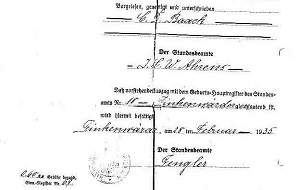 Vorgelesen, genehmigt und unterschrieben
C. J. Baack
Der Standesbeamte
J. C. W. Ahrens
Daß vorstehender Auszug mit dem Geburts-Hauptregister des Standes-
amts Nr. 11 - Finkenwärder gleichlautend ist,
wird hiermit bestätigt
Finkenwärder, am 18 ten Februar 1935
Der Standesbeamte
Fengler
Gebühr bezahlt